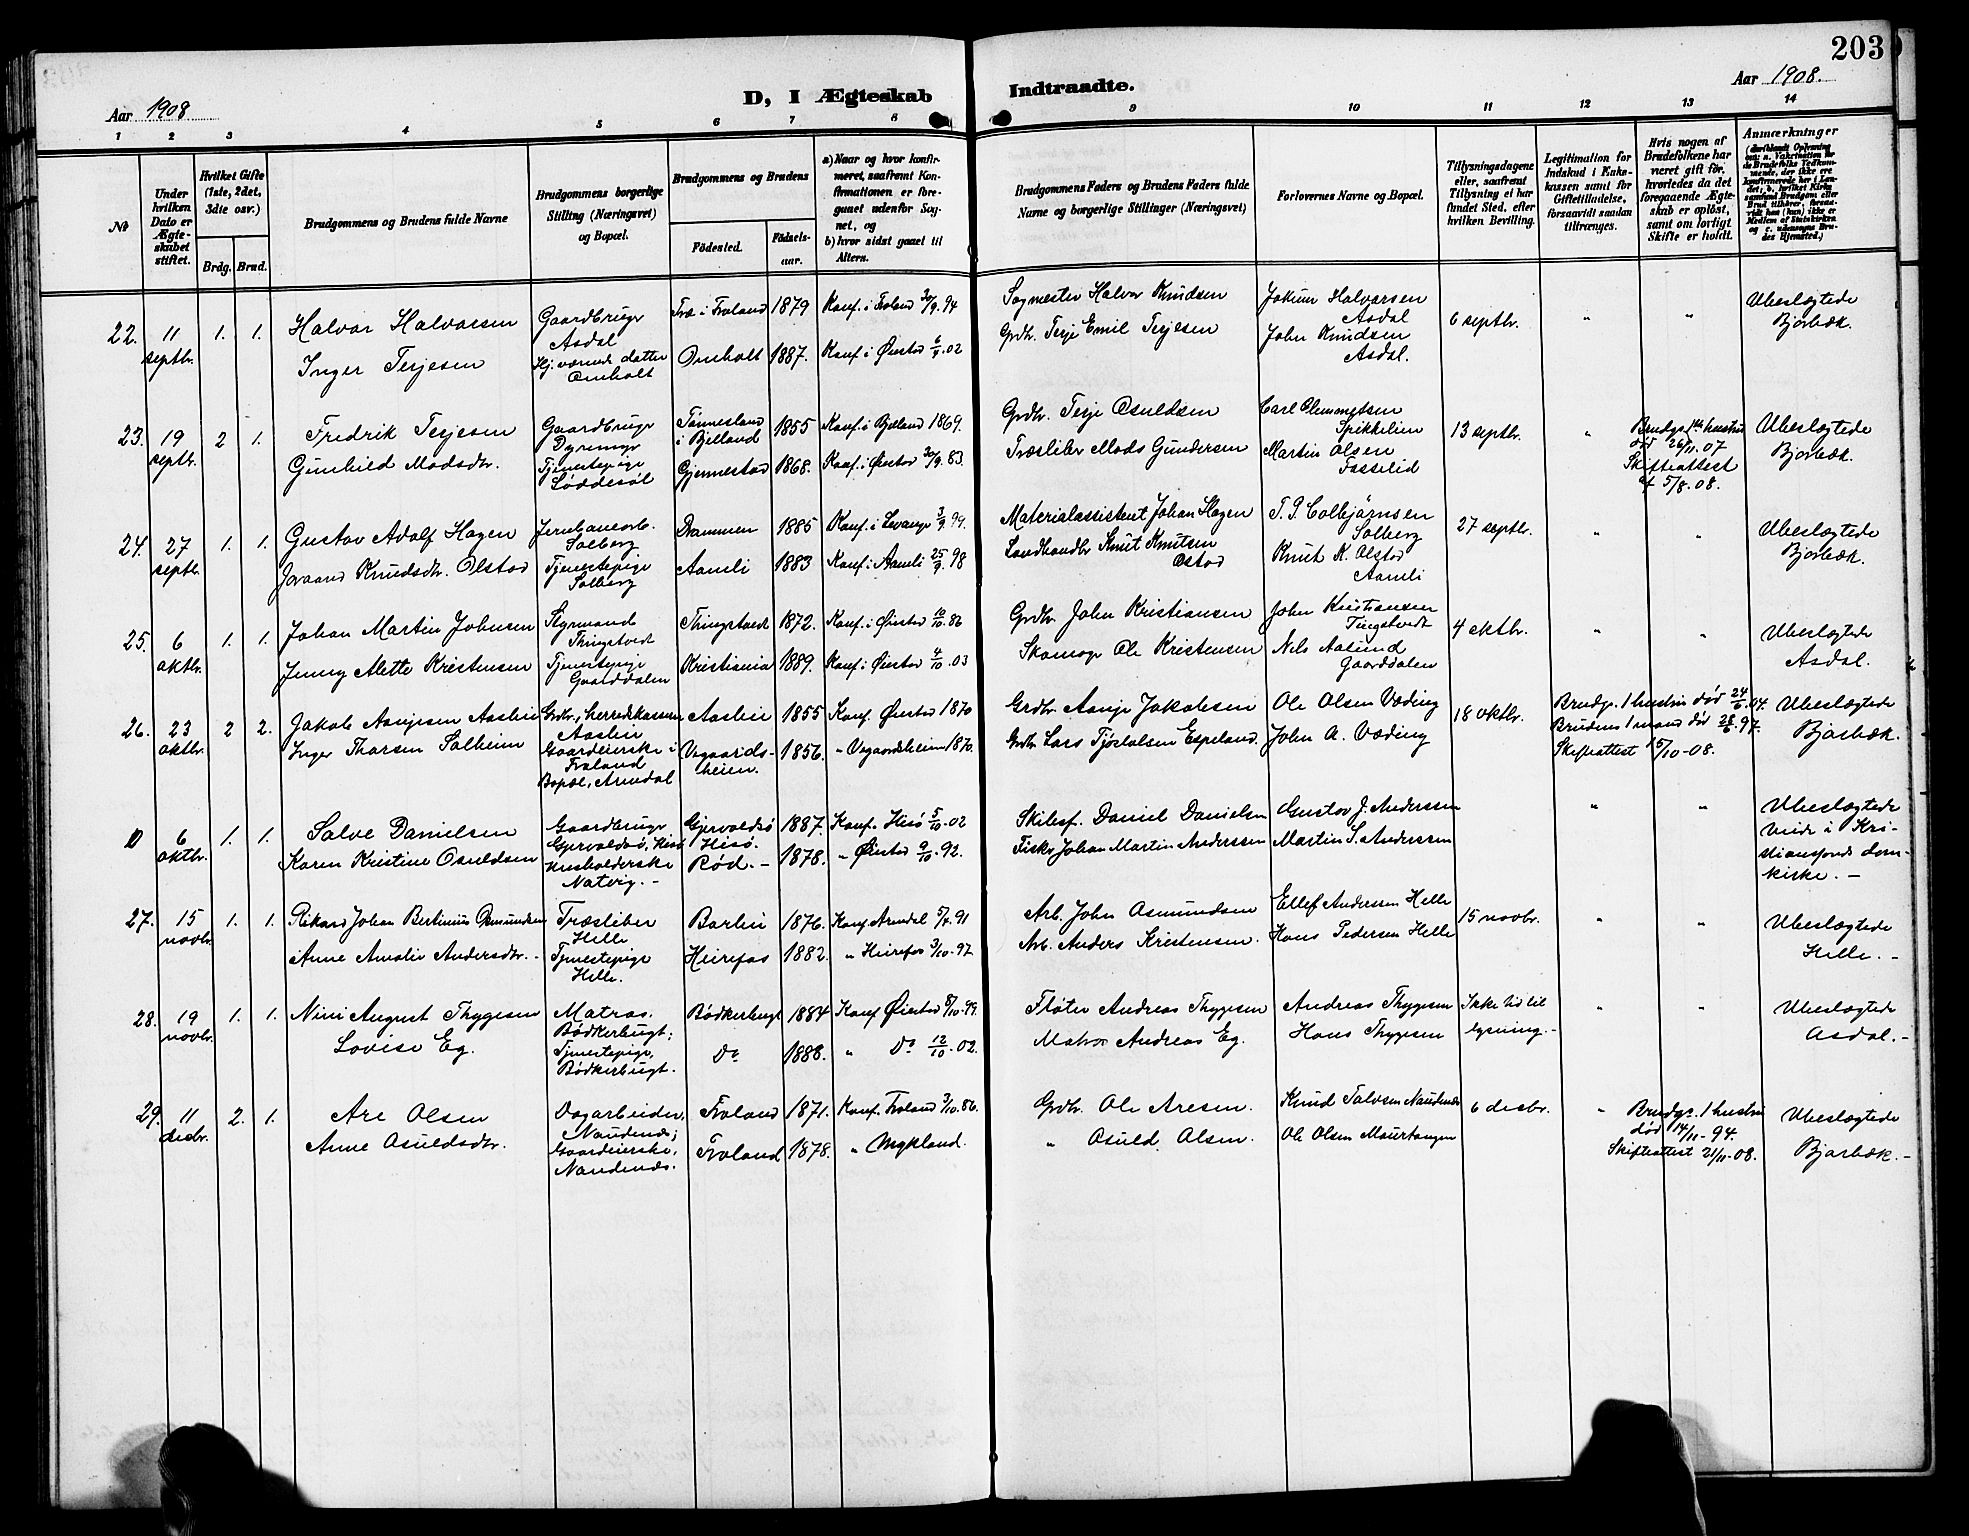 203
Aar 1908
D, I Ægteskab Indtraadte.
Aar 1908.
1 2 3 4 5 6 7 8 9 10 11 12 13 14
No
Under hvilken Dato er Ægteskabet stiftet.
Hvilket Gifte (1ste, 2det, 3die osv.)
Brdg. Brud.
Brudgommens og Brudens fulde Navne
Brudgommens borgerlige Stilling (Næringsvei) og Bopæl.
Brudgommens og Brudens
Födested. Födselsaar.
a) Naar og hvor konfirmeret, saafremt Konfirmationen er foregaaet udenfor Sognet, og
b) hvor sidst gaaet til Alters.
Brudgommens Faders og Brudens Faders fulde Navne og borgerlige Stillinger (Næringsvei)
Forlovernes Navne og Bopæl.
Tillysningsdagene eller, saafremt Tillysning ei har fundet Sted, efter hvilken Bevilling.
Legitimation for Indskud i Enkekassen samt for Giftetilladelse, forsaavidt saadan tiltrænges.
Hvis nogen af Brudefolkene har været gift før, hvorledes da det foregaaende Ægteskab er oplöst, samt om lovligt Skifte er holdt.
Anmærkninger
22. 11 septbr. 1. 1. Halvor Halvorsen Gaardbruger Asdal Træ i Froland 1879 Konf. i Froland 30/9.94 Sagmester Halvor Knudsen Jokum Halvorsen Asdal 6 septbr. " " Ubeslægtede Bjorbæk.
Inger Terjesen Hj. værende datter Omholt Omholt 1887. Konf. i Øiestad 6/9.02 Grdbr. Terje Emil Terjesen John Knudsen Asdal.
23. 19 septbr. 2 1. Fredrik Terjesen Gaardbruger Tønnesland i Bjelland 1855 Konf. i Bjelland 1869. Grdbr. Terje Osuldsen Carl Clemmetsen Spikkelien 13 septbr. " Brudgs 1ste hustru død 26/11.07 Skifteattest af 5/8.08. Ubeslægtede Bjorbæk.
Gunhild Madsdtr. Tjenestepige Løddesøl Gjennestad 1868. Konf. i Øiestad 30/9.83. Træsliber Mads Gundersen Martin Olsen
24. 27 septbr. 1. 1. Gustav Adolf Hagen Jernbanearb. Solberg Drammen 1885 Konf. i Levanger 3/9.99. Materialassistent Johan Hagen T. P. Colbjørnsen Solberg 27 septbr. " " Ubeslægtede Bjorbæk.
Knudsdtr. Olstad Tjenestepige Solberg Aamli 1883 Konf. i Aamli 25/9.98 Landhandler Knut Knutsen Knut K. Olstad Aamli
25. 6 oktbr. 1. 1. Johan Martin Johnsen Styrmand Thingstvedt Thingstvedt 1872. Konf. i Øiestad 10/10.86 Grdbr. John Kristiansen John Kristiansen Tingstvedt 4 oktbr. " " Ubeslægtede Asdal.
Jenny Alette Kristensen Tjenestepige Gaarddalen Kristiania 1889. Konf. i Øiestad 4/10.03 Skomager Ole Kristensen Nels Aasund Gaarddalen
26. 23 oktbr. 2 2. Jakob Aanjesen Aaslien Grdbr., herredskasserer Aaslien Aaslien 1855 Konf. Øiestad 1870 Grdbr. Aanje Jakobsen Ole Olsen Væding 18 oktbr. Brudgs. 1 hustru død 24/6.04. Brudens 1 mand død 28/6.97. Skifteattest 15/10-08. Ubeslægtede Bjorbæk.
Inger Tharsen Solheim Gaardeierske i Froland Bopæl, Arendal Vegaardsheien. 1856. " Vegaardsheien 1870. Grdbr. Lars Tjøstolsen Espeland. John A. Væding
0 6 oktbr. 1. 1. Salve Danielsen Gaardbruger Gjervoldsø, Hisø Gjervoldsø Hisø. 1887. Konf. Hisø 5/10.02 Daniel Danielsen Gustav J. Anderssen " " Ubeslægtede viede i Kristianssands domkirke. -
Karen Kristine Osuldsen Husholderske Natvig. - Rød. - 1878. " Øiestad 9/10.92. Fisker Johan Martin Anderssen Martin S. Anderssen
27. 15 novbr. 1. 1. Rikard Johan Bertinius Osmundsen Træsliber Helle Barlien 1876. Konf Arendal 5/4.91 Arb. John Asmundsen Ellef Andersen Helle 15 novbr. " " Ubeslægtede Helle. -
Anne Amalie Andersdtr. - Tjenestepige Helle. Heirefos 1882. " Heirefos 3/10-97 Arb. Anders Kristensen. Hans Pedersen Helle
28. 19 novbr. 1. 1. Nini August Thygesen Matros. Bødkerbugt; Bødkerbugt 1884 Konf Øiestad 8/10-99. Fløter Andreas Thygesen Andreas Thygesen Ikke tid til lysning. - " " Ubeslægtede Asdal. -
Lovise Eg. Tjenestepige, Bødkerbugt. Do 1888. " Do 12/10.02. Matros Andreas Eg. Hans Thygesen
29. 11 desbr. 2. 1. Are Olsen Dagarbeider, Naudenæs; Froland 1871. Konf. Froland 3/10.86. Grdbr. Ole Aresen. Knud Salvesen Naudenæs 6 desbr. " Brudgs. 1 hustru død 14/11-94. Skifteattest 21/11-08. Ubeslægtede Bjorbæk. -
Anne Osuldsdtr. Gaardeierske, Naudenæs. Froland 1878. " Mykland. " Osuld Olsen. Ole Olsen Maurtangen